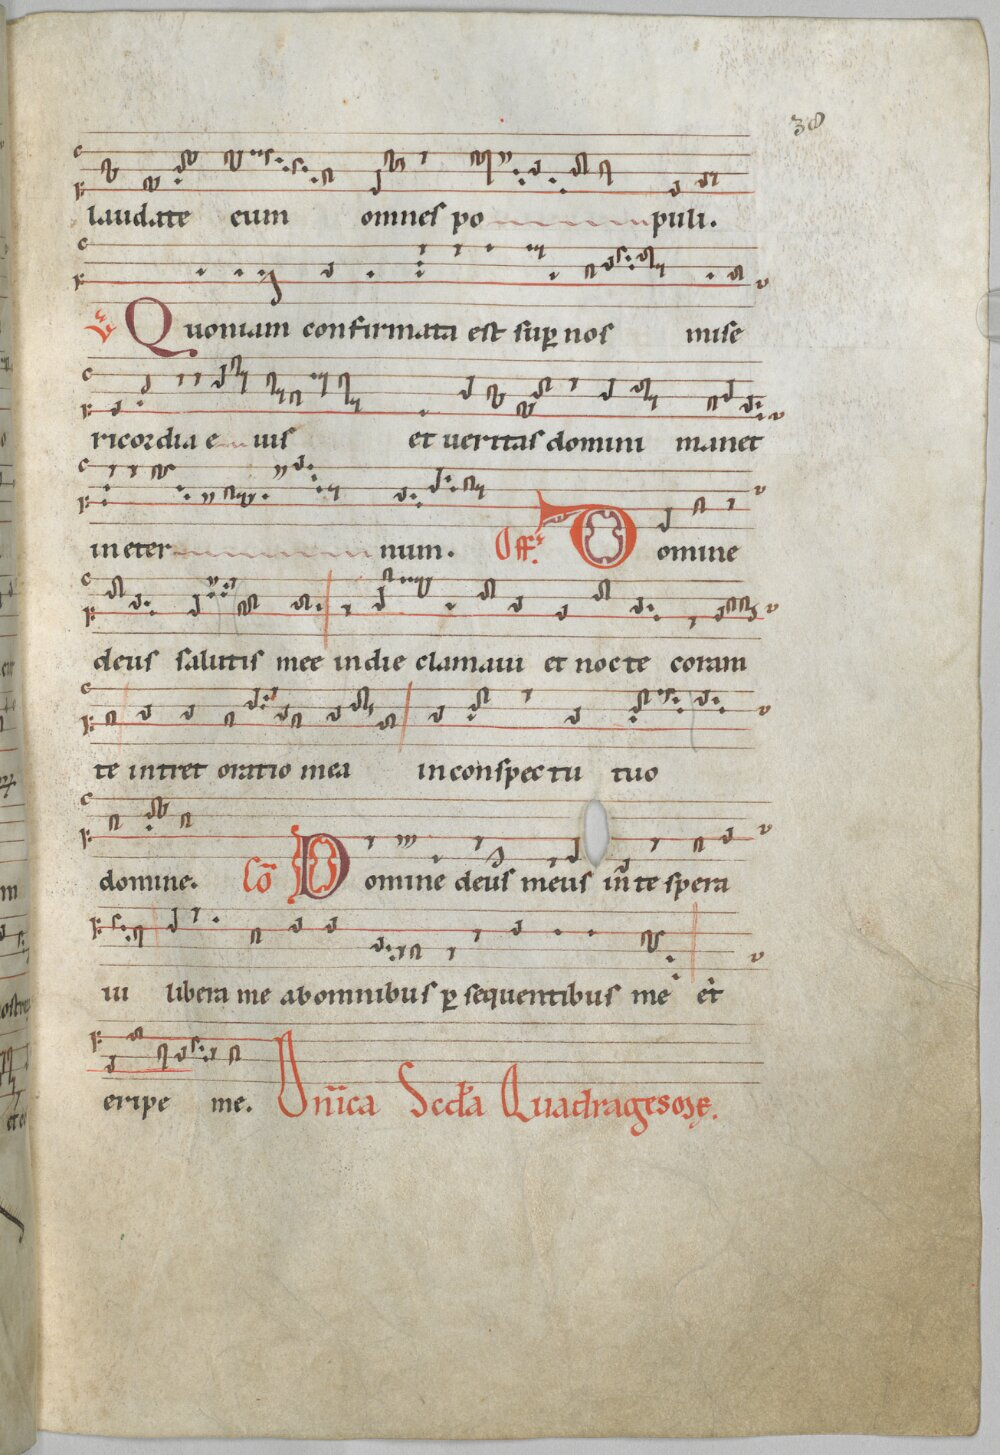 38
laudate eum omnes po puli.
Quoniam confirmata est sup nos mise
ricordia e uis et ueritas domini manet
in eter num. Off. Domine
deus salutis mee in die clamaui et nocte coram
te intret oratio mea in conspectu tuo
domine. Cō Domine deus meus in te spera
ui libera me ab omnibus p sequentibus me et
eripe me. Dn̄ica Scd̄a Quadragesȝ.